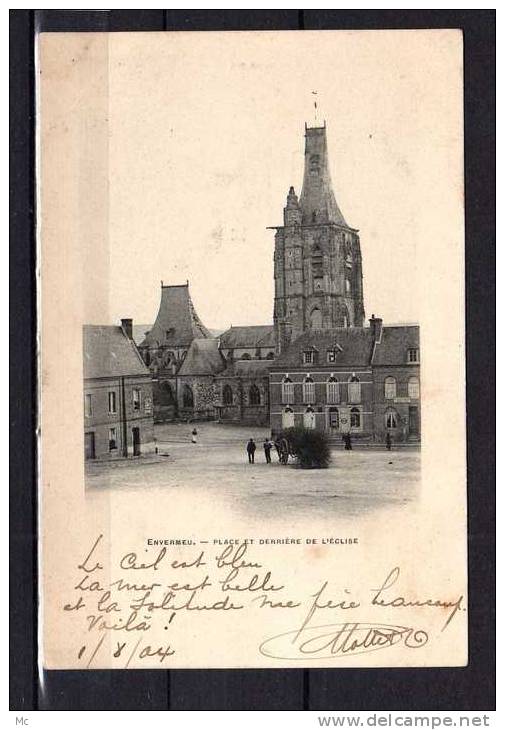 ENVERMEU. — PLACE ET DERRIÈRE DE L'ÉGLISE
Le Ciel est bleu
La mer est belle
et la Solitude me pèse beaucoup.
Voilà !
1/8/04
Mc
www.delcampe.net